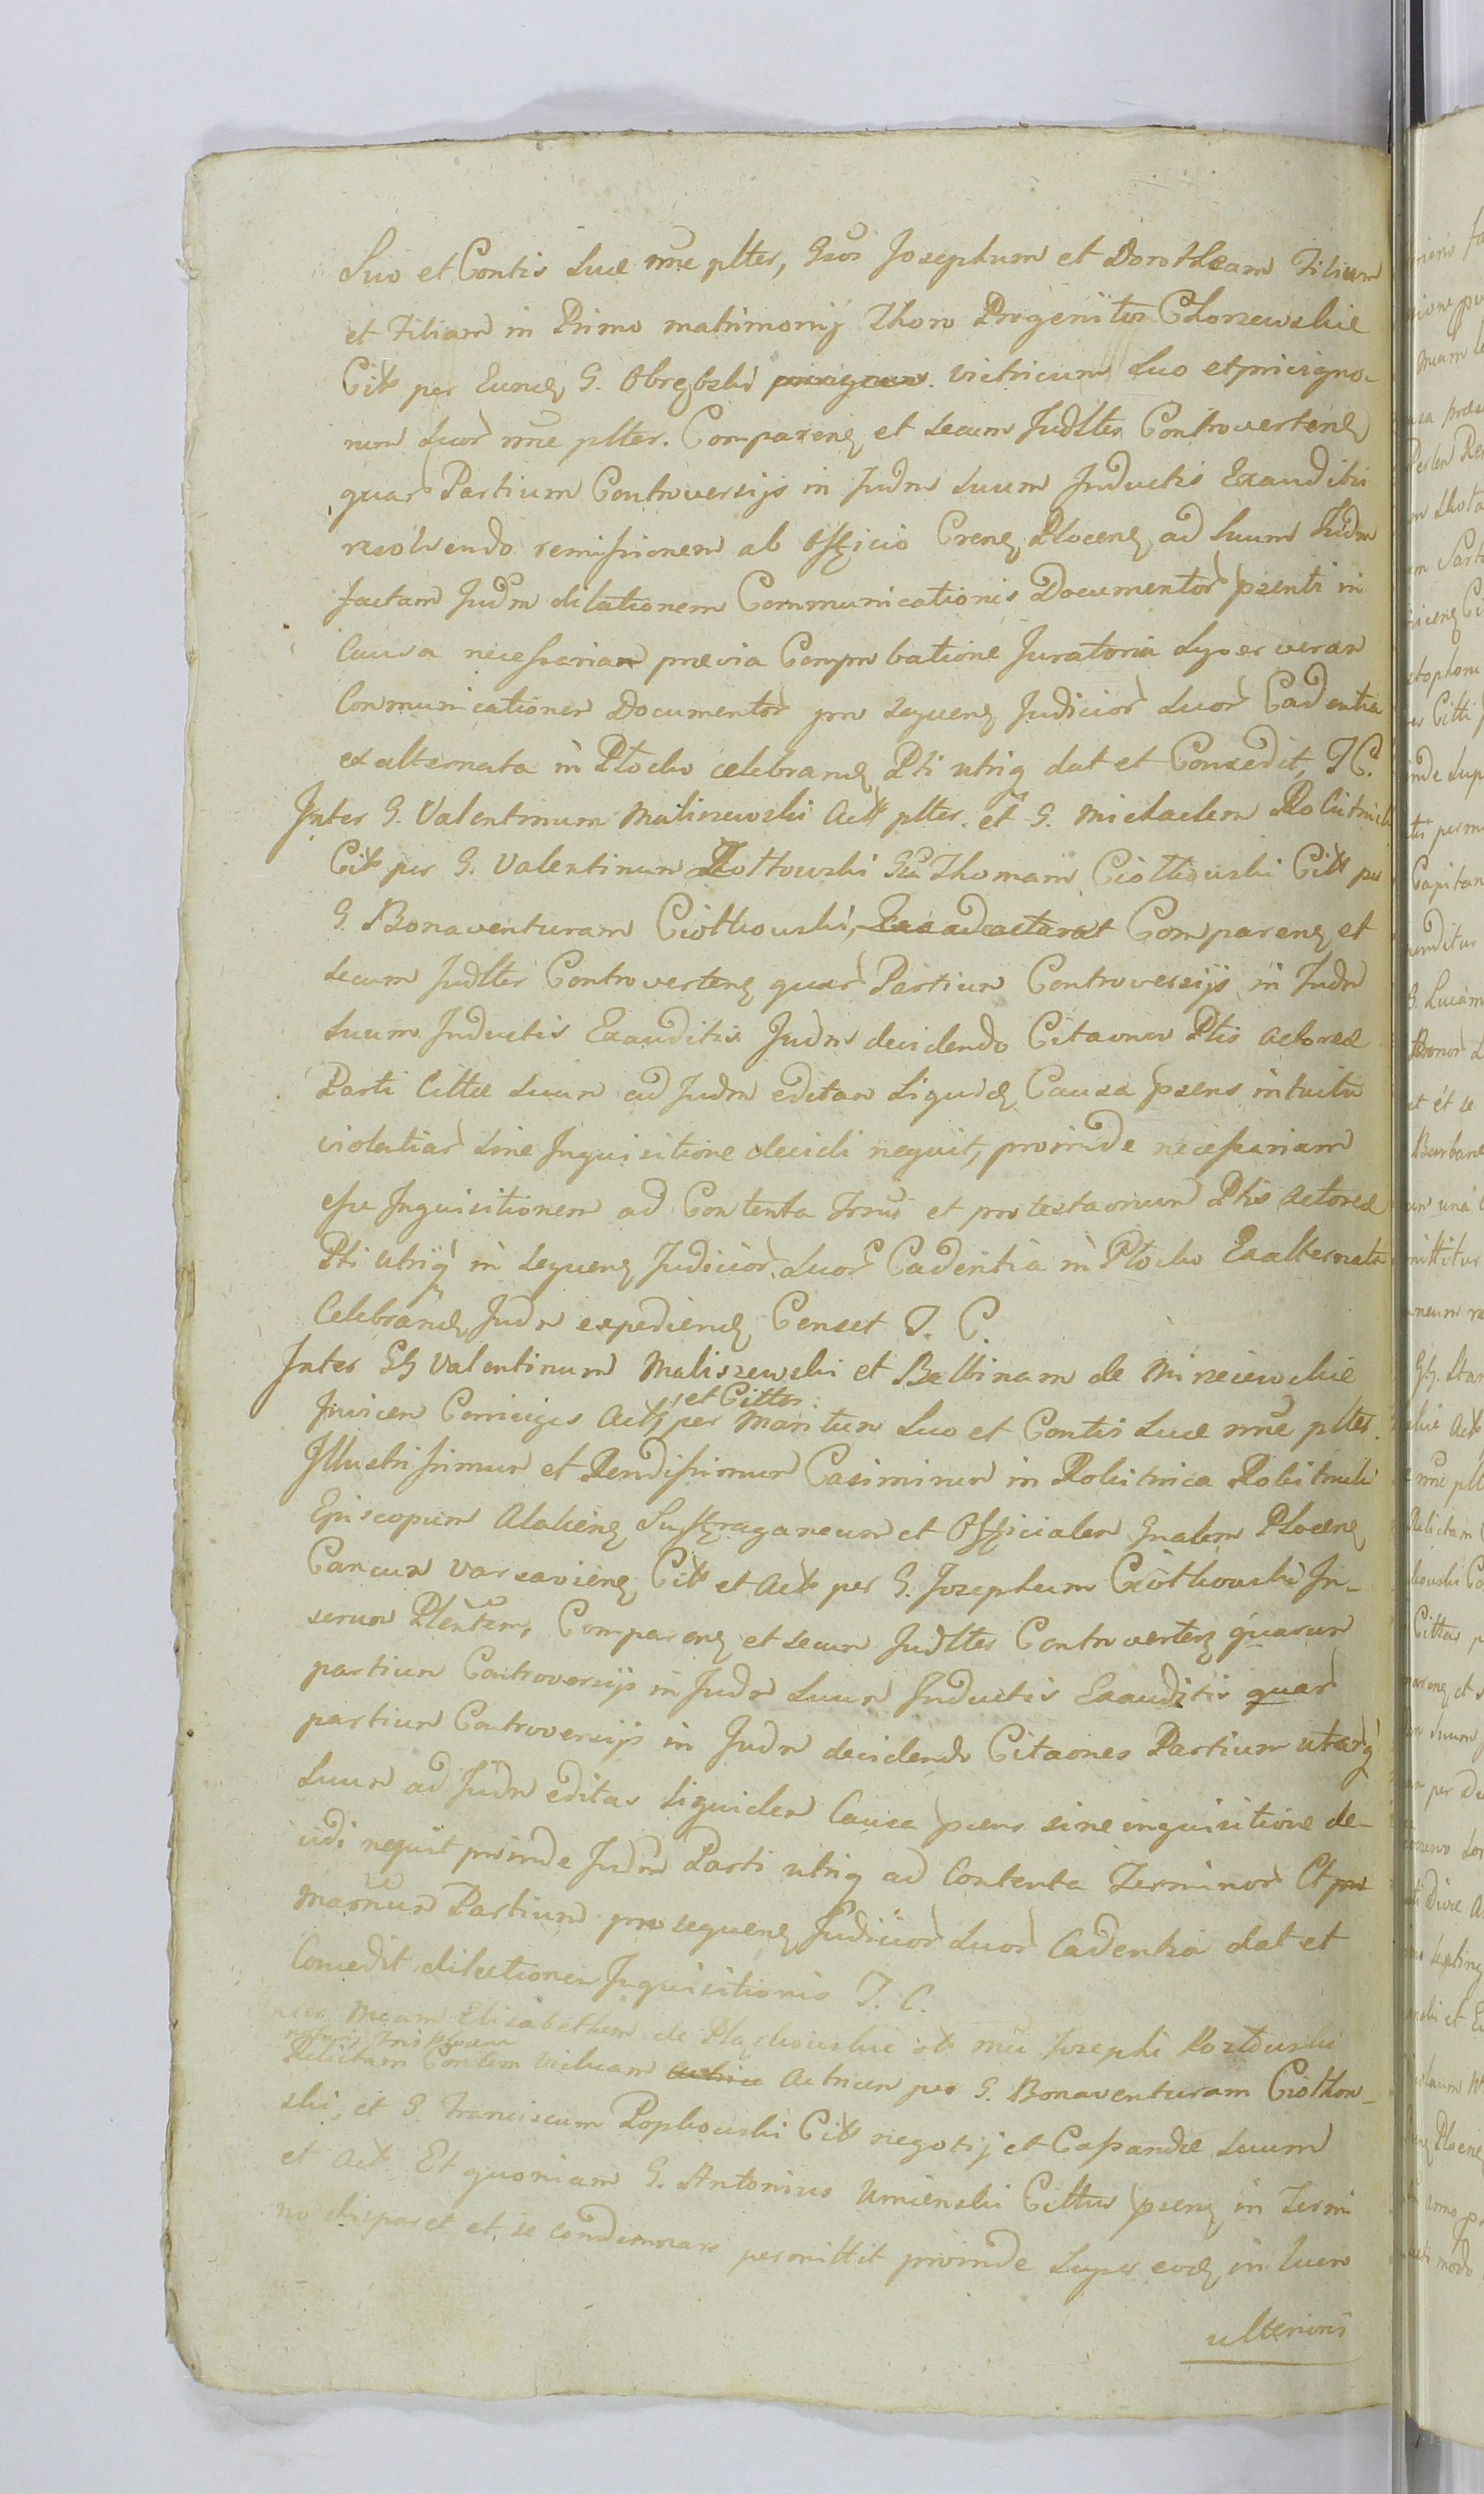 Suo et Contis suæ nne plter, Gsos Josephum et Dorotheam Filium
et Filiam in Primo matrimonij Thoro Progenitos Chorzewskie
Citt per Eundq G. Obrębski privignus victricum suo et privigno-
rum suor nne plter. Comparenq et secum Judlter Controvertenq
quar Partium Controversijs in Judm suum Inductis Exauditis
resolvendo remissionem ab Officio Crenq Plocenq ad suum Judm
factam Judm dilationem Communicationis Documentor psenti in
Causa necessariar prævia Comprobatione Juratoria Super veram
Communicationem Documentor pro sequenq Judicior suor Cadentia
exalternata in Płocko celebranq Pti utriq dat et Concedit, T.C.
Inter G. Valentinum Maliszewski Actt plter. et G. Michaelem Rokitnicki
Citt per G. Valentinum Zołtowski Gsu Thomam Ciołkowski Citt per
G. Bonaventuram Ciołkowski, Comparenq et
secum Judlter Controvertenq quar Partium Controversijs in Judm
suum Inductis Exauditis Judm decidendo Citaonem Ptis actoreæ
Parti Cittæ suum ad Judm editam Liquidq Causa psens intuitu
violentiar sine Inquisitione decidi nequit, proinde necessariam
esse Inquisitionem ad Contenta Trmi et protestaonum Ptis Actoreæ
Pti utriq in sequenq Judicior suor Cadentia in Płocko Exalternata
Celebranq Judm expedienq Censet T. C.
Inter GG Valentinum Maliszewski et Balbinam de Mirzeiewskie
Invicem Conjuges Actt et Cittos per Maritum suo et Contis suæ nne plter.
Illustrissimum et Rendissimum Casimirum in Rokitnica Rokitnicki
Episcopum Alalienq Suffraganeum et Officialem Gnalem Plocenq
Cancum Varsavienq Citt et Actt per G. Josephum Ciołkowski In-
serum Plentem, Comparenq et secum Judlter Controvertenq quarum
partium Controversijs in Judm suum Inductis Exauditis quar
partium Controversijs in Judm decidendo Citaones Partium utrarq
suum ad Judm editas liquidem Causa psens sine inquisitione de-
cidi nequit proinde Judm Parti utriq ad Contenta Terminor Et pro
Partium pro sequenq Judicior suor Cadentia dat et
Concedit dilationem Inquisitionis T. C.
Inter Mcam Elisabetham de ot mci Josephi
Relictam Contem viduam Actricem per G. Bonaventuram Ciołkow-
ski, et G. Franciscum Popkowski Citt negotij et Cassandæ suum
et Act. Et quoniam G. Antonius Umienski Cittus psenq in Termi
no disparet et se condemnare permittit proinde super eodq in lucro
ulterioris